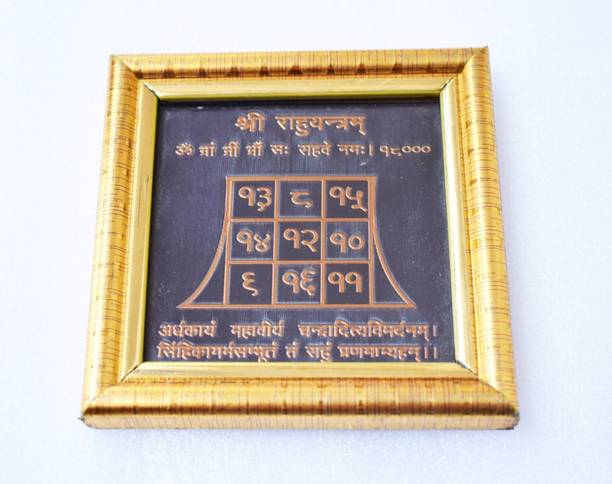 श्री राहुयन्त्रम्
ॐ भ्रां भ्रीं भ्रौं सः राहवे नमः। १८०००
१३ ८ १५
१४ १२ १०
९ १६ ११
अर्धकायं महावीर्यं चन्द्रादित्यविमर्दनम्।
सिंहिकागर्भसम्भूतं तं राहुं प्रणमाम्यहम्।।